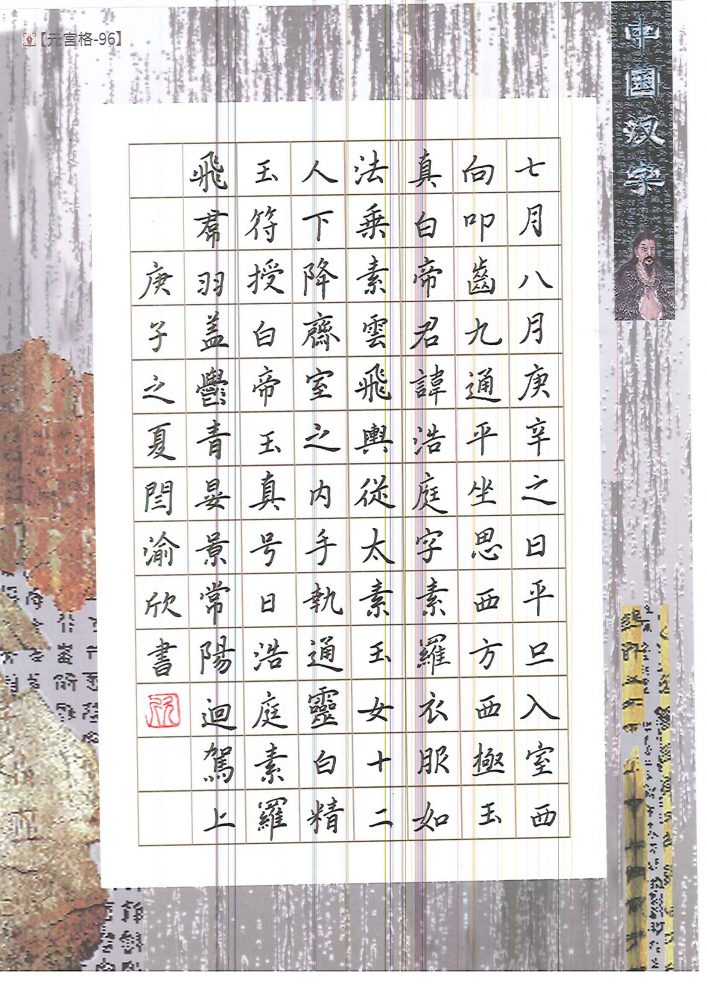 【元宫格-96】
中国汉字
七月八月庚辛之日平旦入室西
向叩齒九通平坐思西方西極玉
真白帝君諱浩庭字素羅衣服如
法乗素雲飛輿從太素玉女十二
人下降齋室之内手執通靈白精
玉符授白帝玉真号曰浩庭素羅
飛帬羽盖鬱青晏景常陽迴駕上
庚子之夏閆渝欣書